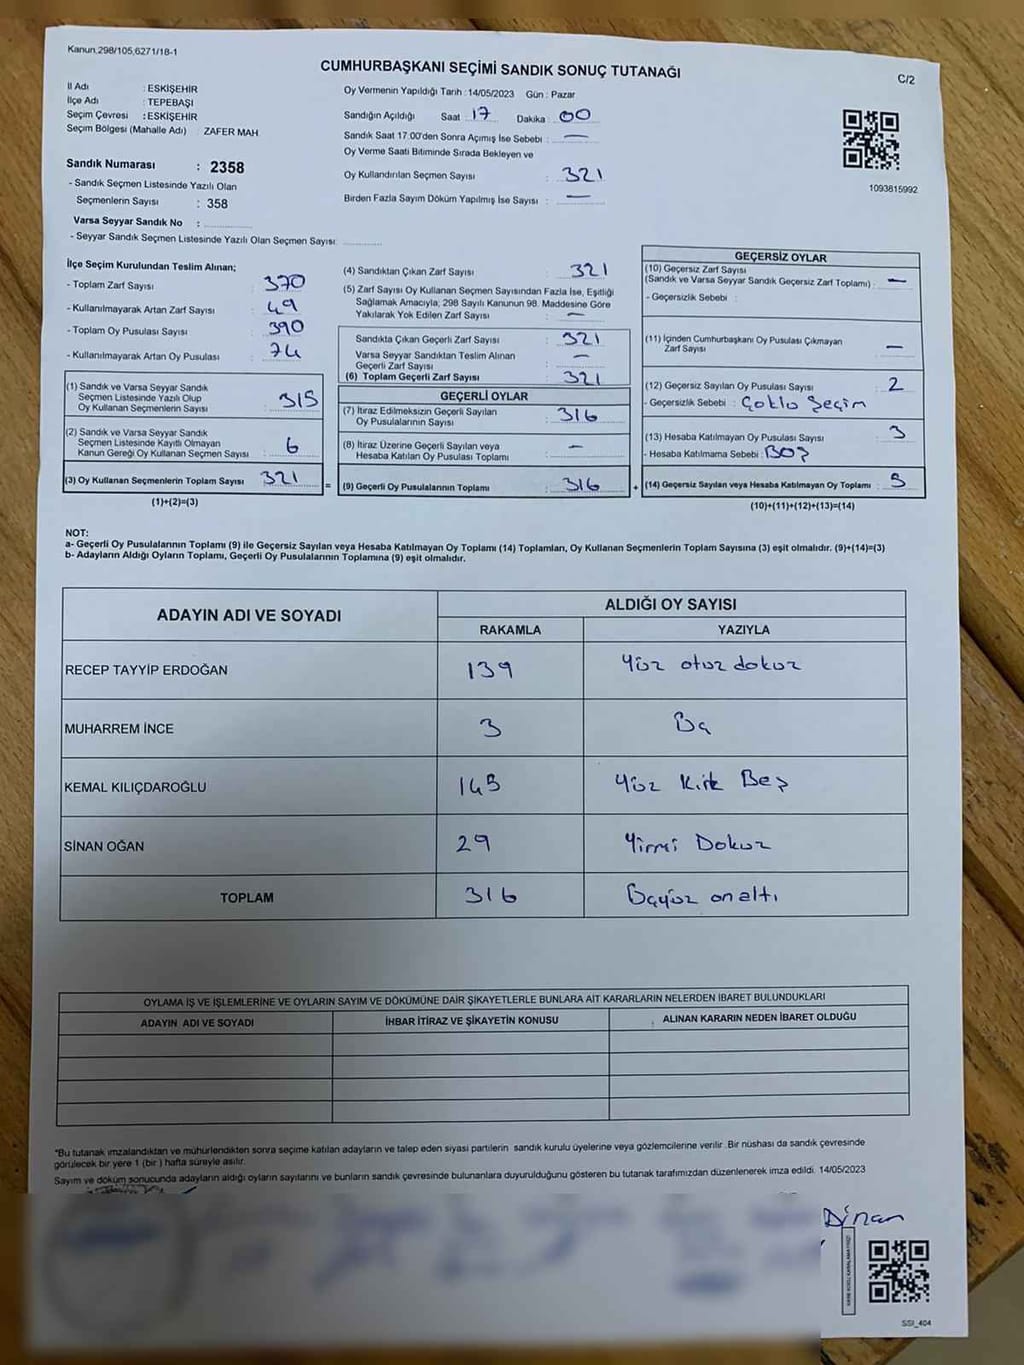 Kanun.298/105,6271/18-1
CUMHURBAŞKANI SEÇİMİ SANDIK SONUÇ TUTANAĞI
C/2
İl Adı : ESKİŞEHİR
İlçe Adı : TEPEBAŞI
Seçim Çevresi : ESKİŞEHİR
Seçim Bölgesi (Mahalle Adı) : ZAFER MAH
Sandık Numarası : 2358
- Sandık Seçmen Listesinde Yazılı Olan
Seçmenlerin Sayısı : 358
Varsa Seyyar Sandık No :
- Seyyar Sandık Seçmen Listesinde Yazılı Olan Seçmen Sayısı:
Oy Vermenin Yapıldığı Tarih :14/05/2023 Gün : Pazar
Sandığın Açıldığı Saat : 17 Dakika : 00
Sandık Saat 17.00'den Sonra Açımış İse Sebebi : —
Oy Verme Saati Bitiminde Sırada Bekleyen ve
Oy Kullandırılan Seçmen Sayısı : 321
Birden Fazla Sayım Döküm Yapılmış İse Sayısı : —
1093815992
İlçe Seçim Kurulundan Teslim Alınan;
- Toplam Zarf Sayısı : 370
- Kullanılmayarak Artan Zarf Sayısı : 49
- Toplam Oy Pusulası Sayısı : 390
- Kullanılmayarak Artan Oy Pusulası : 74
(1) Sandık ve Varsa Seyyar Sandık
Seçmen Listesinde Yazılı Olup
Oy Kullanan Seçmenlerin Sayısı : 315
(2) Sandık ve Varsa Seyyar Sandık
Seçmen Listesinde Kayıtlı Olmayan
Kanun Gereği Oy Kullanan Seçmen Sayısı : 6
(3) Oy Kullanan Seçmenlerin Toplam Sayısı : 321
(1)+(2)=(3)
(4) Sandıktan Çıkan Zarf Sayısı : 321
(5) Zarf Sayısı Oy Kullanan Seçmen Sayısından Fazla İse, Eşitliği
Sağlamak Amacıyla, 298 Sayılı Kanunun 98. Maddesine Göre
Yakılarak Yok Edilen Zarf Sayısı : —
Sandıkta Çıkan Geçerli Zarf Sayısı : 321
Varsa Seyyar Sandıktan Teslim Alınan
Geçerli Zarf Sayısı : —
(6) Toplam Geçerli Zarf Sayısı : 321
GEÇERLİ OYLAR
(7) İtiraz Edilmeksizin Geçerli Sayılan
Oy Pusulalarının Sayısı : 316
(8) İtiraz Üzerine Geçerli Sayılan veya
Hesaba Katılan Oy Pusulası Toplamı : —
= (9) Geçerli Oy Pusulalarının Toplamı : 316
GEÇERSİZ OYLAR
(10) Geçersiz Zarf Sayısı
(Sandık ve Varsa Seyyar Sandık Geçersiz Zarf Toplamı) : —
- Geçersizlik Sebebi :
(11) İçinden Cumhurbaşkanı Oy Pusulası Çıkmayan
Zarf Sayısı : —
(12) Geçersiz Sayılan Oy Pusulası Sayısı : 2
- Geçersizlik Sebebi : Çoklu Seçim
(13) Hesaba Katılmayan Oy Pusulası Sayısı : 3
- Hesaba Katılmama Sebebi : BOŞ
+ (14) Geçersiz Sayılan veya Hesaba Katılmayan Oy Toplamı : 5
(10)+(11)+(12)+(13)=(14)
NOT:
a- Geçerli Oy Pusulalarının Toplamı (9) ile Geçersiz Sayılan veya Hesaba Katılmayan Oy Toplamı (14) Toplamları, Oy Kullanan Seçmenlerin Toplam Sayısına (3) eşit olmalıdır. (9)+(14)=(3)
b- Adayların Aldığı Oyların Toplamı, Geçerli Oy Pusulalarının Toplamına (9) eşit olmalıdır.
ADAYIN ADI VE SOYADI
ALDIĞI OY SAYISI
RAKAMLA YAZIYLA
RECEP TAYYİP ERDOĞAN 139 Yüz otuz dokuz
MUHARREM İNCE 3 Üç
KEMAL KILIÇDAROĞLU 145 Yüz Kırk Beş
SİNAN OĞAN 29 Yirmi Dokuz
TOPLAM 316 Üçyüz onaltı
OYLAMA İŞ VE İŞLEMLERİNE VE OYLARIN SAYIM VE DÖKÜMÜNE DAİR ŞİKAYETLERLE BUNLARA AİT KARARLARIN NELERDEN İBARET BULUNDUKLARI
ADAYIN ADI VE SOYADI İHBAR İTİRAZ VE ŞİKAYETİN KONUSU ALINAN KARARIN NEDEN İBARET OLDUĞU
*Bu tutanak imzalandıktan ve mühürlendikten sonra seçime katılan adayların ve talep eden siyasi partilerin sandık kurulu üyelerine veya gözlemcilerine verilir .Bir nüshası da sandık çevresinde
görülecek bir yere 1 (bir ) hafta süreyle asılır.
Sayım ve döküm sonucunda adayların aldığı oyların sayılarını ve bunların sandık çevresinde bulunanlara duyurulduğunu gösteren bu tutanak tarafımızdan düzenlenerek imza edildi. 14/05/2023
SSI_404